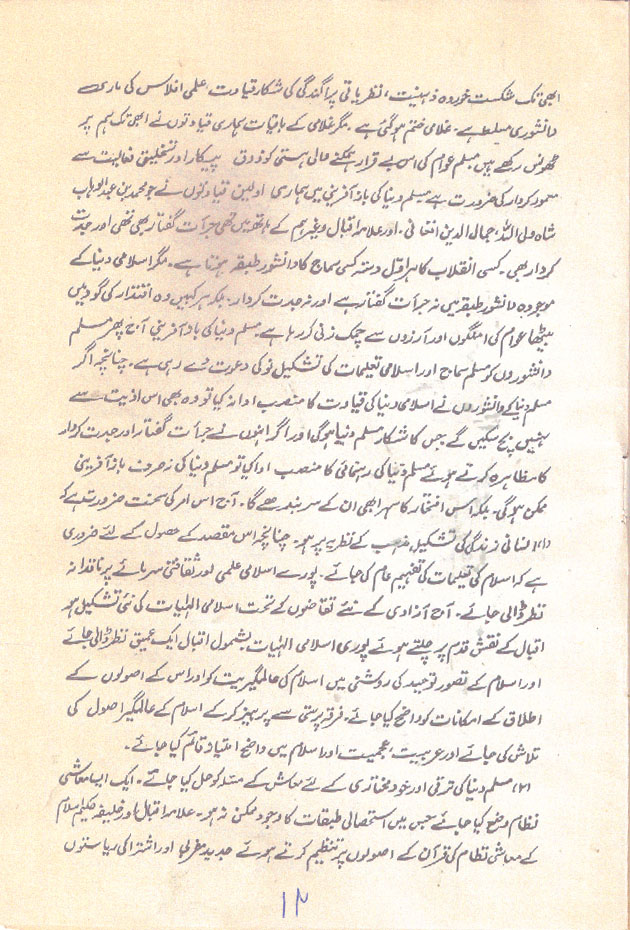 ابھی تک شکست خوردہ ذہنیت، نظریاتی پراگندگی کی شکار قیادت، علمی افلاس کی ماری
دانشوری مسلط ہے۔ غلامی ختم ہو گئی ہے۔ مگر غلامی کے باقیات ہماری قیادتوں نے ابھی تک ہم پر
ٹھونس رکھے ہیں مسلم عوام کی اس بے قرار رکھنے والی ہستی کو ذوق پیکار اور تخلیقی فعالیت سے
معمور کردار کی ضرورت ہے مسلم دنیا کی باز آفرینی میں ہماری اولین قیادتوں نے جو محمد بن عبدالوہاب
شاہ ولی اللہ، جمال الدین افغانی۔ اور علامہ اقبال وغیرہم کے ہاتھ میں تھی جرأت گفتار بھی تھی اور جدت
کردار بھی۔ کسی انقلاب کا ہر اول دستہ کسی سماج کا دانشور طبقہ ہوتا ہے۔ مگر اسلامی دنیا کے
موجودہ دانشور طبقہ میں نہ جرأت گفتار ہے اور نہ جدت کردار، بلکہ ہر کہیں وہ اقتدار کی گود میں
بیٹھا عوام کی امنگوں اور آرزوں سے چمک زنی کر رہا ہے۔ مسلم دنیا کی باز آفرینی آج پھر مسلم
دانشوروں کو مسلم سماج اور اسلامی تعلیمات کی تشکیل نو کی دعوت دے رہی ہے۔ چنانچہ اگر
مسلم دنیا کے دانشوروں نے اسلامی دنیا کی قیادت کا منصب ادا نہ کیا تو وہ بھی اس اذیت سے
نہیں بچ سکیں گے جس کا شکار مسلم دنیا ہو گی اور اگر انہوں نے جرأت گفتار اور جدت کردار
کا مظاہرہ کرتے ہوئے مسلم دنیا کی رہنمائی کا منصب ادا کیا تو مسلم دنیا کی نہ صرف باز آفرینی
ممکن ہو گی۔ بلکہ اس افتخار کا سہرا بھی ان کے سر بندھے گا۔ آج اس امر کی سخت ضرورت ہے کہ
(۱) انسانی زندگی کی تشکیل مذہب کے نظریہ پر ہو۔ چنانچہ اس مقصد کے حصول کے لئے ضروری
ہے کہ اسلام کی تعلیمات کی تفہیم عام کی جائے۔ پورے اسلامی علمی اور ثقافتی سرمائے پر ناقدانہ
نظر ڈالی جائے۔ آج آزادی کے نئے تقاضوں کے تحت اسلامی الہٰیات کی نئی تشکیل ہو
اقبال کے نقش قدم پر چلتے ہوئے پوری اسلامی الہٰیات بشمول اقبال ایک عمیق نظر ڈالی جائے
اور اسلام کے تصور توحید کی روشنی میں اسلام کی عالمگیریت کو اور اس کے اصولوں کے
اطلاق کے امکانات کو واضح کیا جائے۔ فرقہ پرستی سے پرہیز کر کے اسلام کے عالمگیر اصول کی
تلاش کی جائے اور عربیت، عجمیت اور اسلام میں واضح امتیاز قائم کیا جائے۔
(۲) مسلم دنیا کی ترقی اور خود مختاری کے لئے معاش کے مسئلہ کو حل کیا جائے۔ ایک ایسا معاشی
نظام وضع کیا جائے جس میں استحصالی طبقات کا وجود ممکن نہ ہو۔ علامہ اقبال اور خلیفہ عبدالحکیم اسلام
کے معاشی نظام کی قرآن کے اصولوں پر تنظیم کرتے ہوئے جدید مغربی اور اشتراکی ریاستوں
۱۲